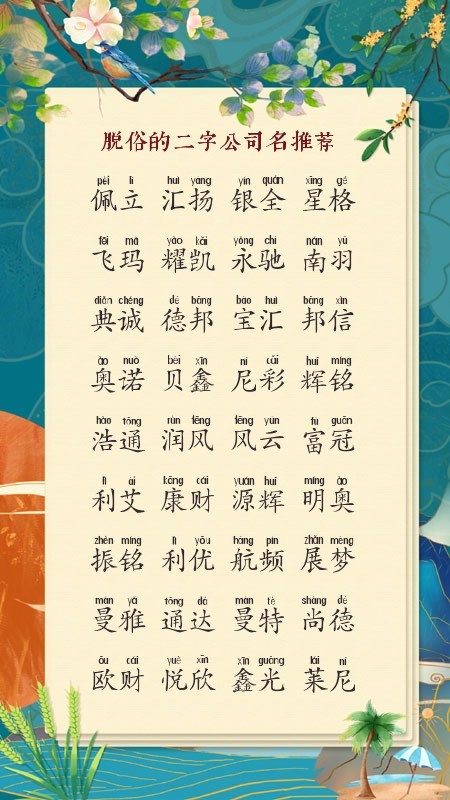 脱俗的二字公司名推荐
pèi lì huì yáng yín quán xīng gé
佩立 汇扬 银全 星格
fēi mǎ yào kǎi yǒng chí nán yǔ
飞玛 耀凯 永驰 南羽
diǎn chéng dé bāng bǎo huì bāng xìn
典诚 德邦 宝汇 邦信
ào nuò bèi xīn ní cǎi huī míng
奥诺 贝鑫 尼彩 辉铭
hào tōng rùn fēng fēng yún fù guān
浩通 润风 风云 富冠
lì ài kāng cái yuán huī míng ào
利艾 康财 源辉 明奥
zhèn míng lì yōu háng pín zhǎn mèng
振铭 利优 航频 展梦
màn yǎ tōng dá màn tè shàng dé
曼雅 通达 曼特 尚德
ōu cái yuè xīn xīn guāng lái ní
欧财 悦欣 鑫光 莱尼